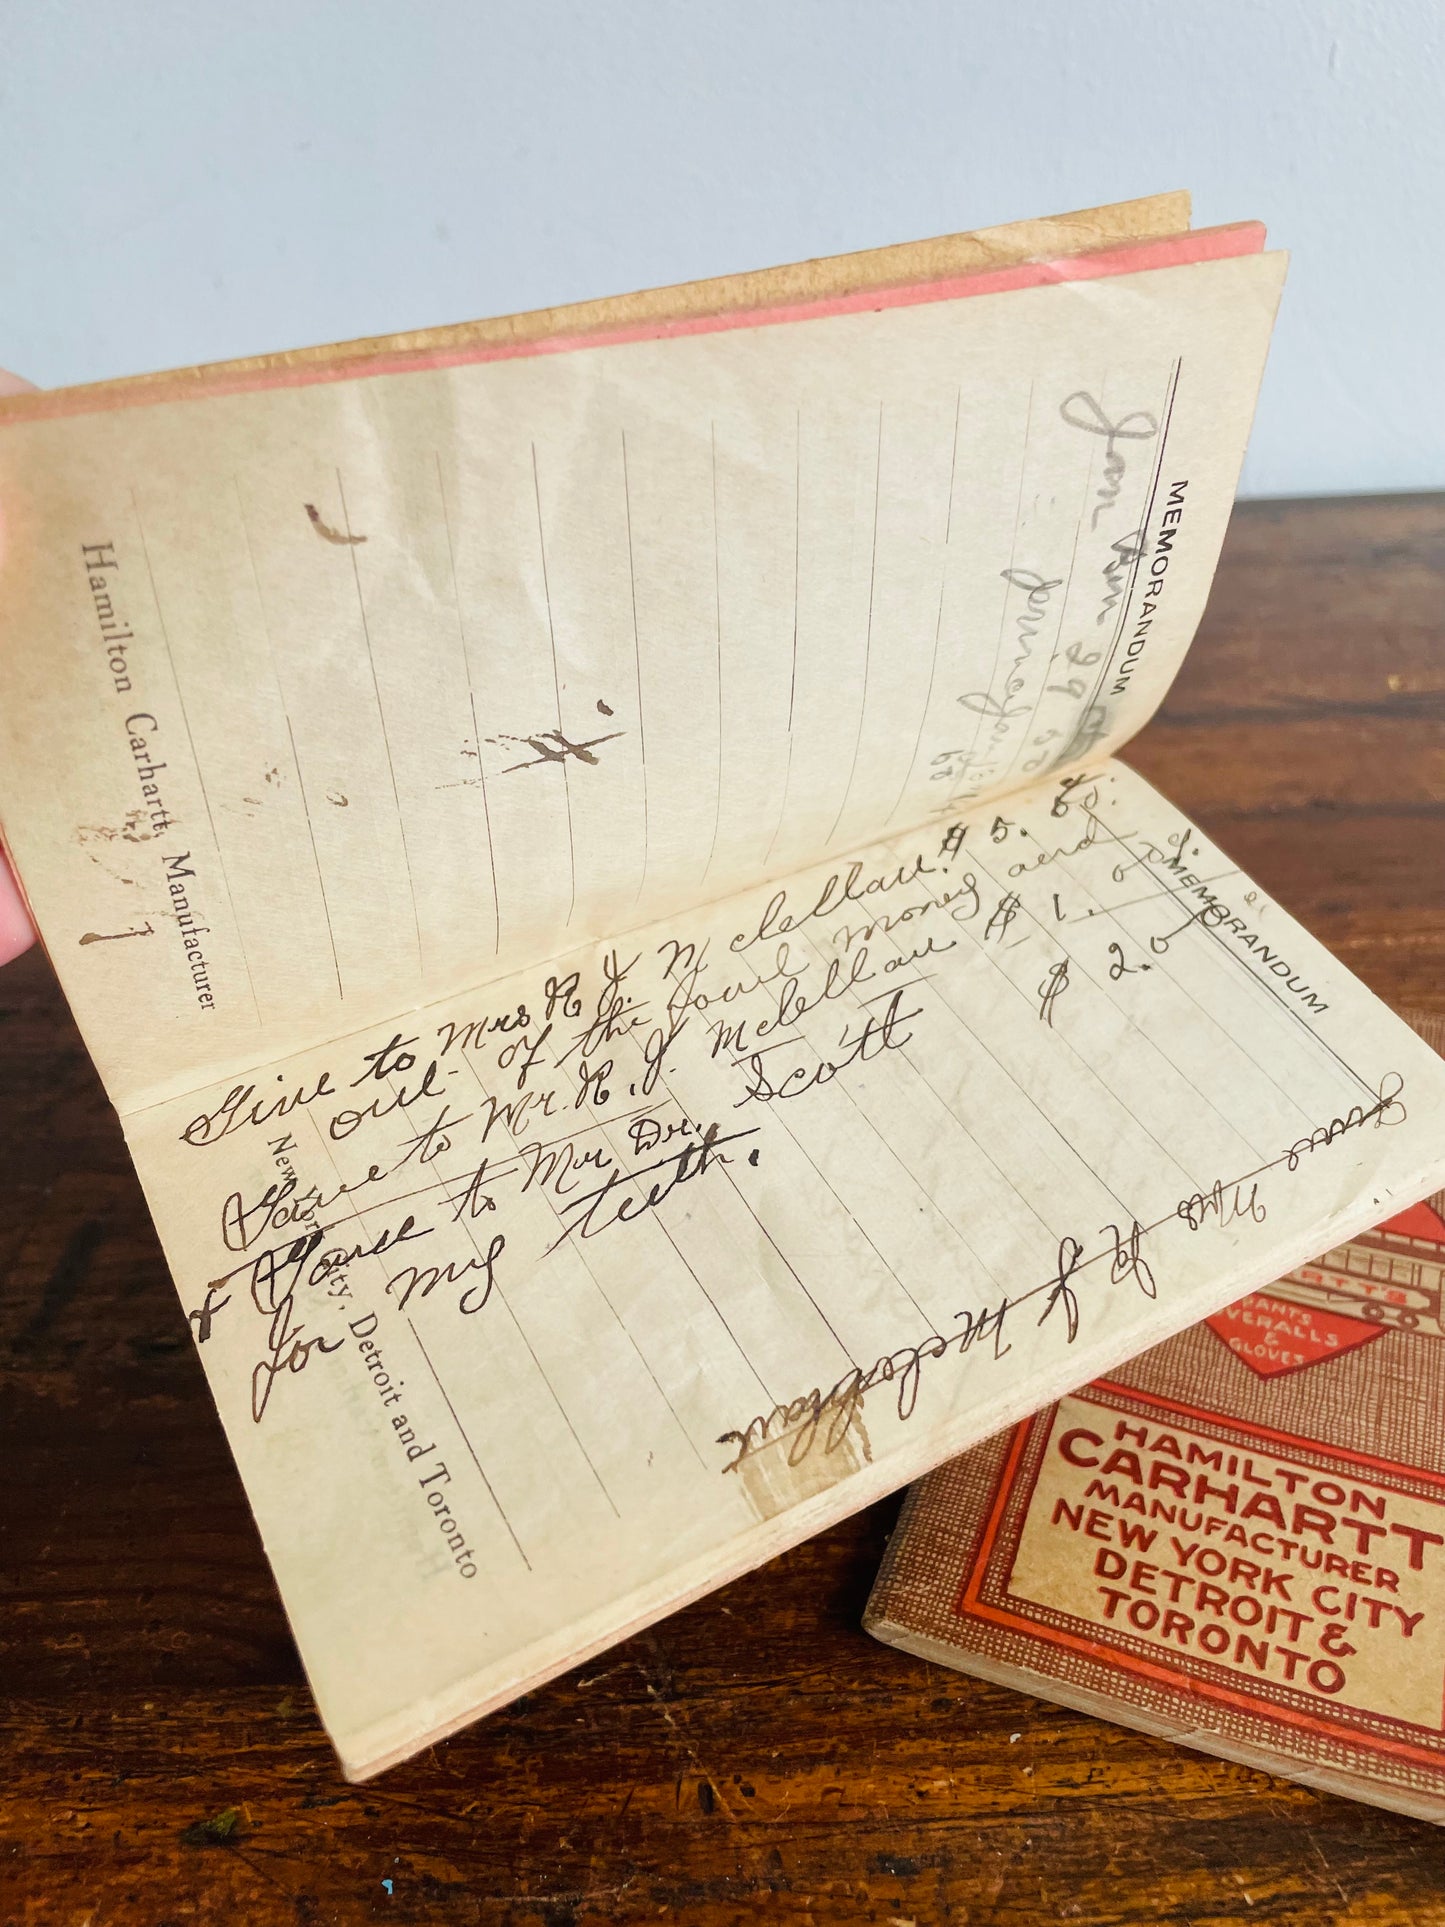 MEMORANDUM
Jan 29
Hamilton Carhartt, Manufacturer
MEMORANDUM
Give to Mrs R J. Mclellan. $ 5.
out of the money and
Gave to Mr. R. J. Mclellan $ 1.00
x Gave to Mr Dr. Scott $ 2.00
for my teeth.
Mrs R J
New York City, Detroit and Toronto
PANTS
OVERALLS
&
GLOVES
HAMILTON
CARHARTT
MANUFACTURER
NEW YORK CITY
DETROIT &
TORONTO